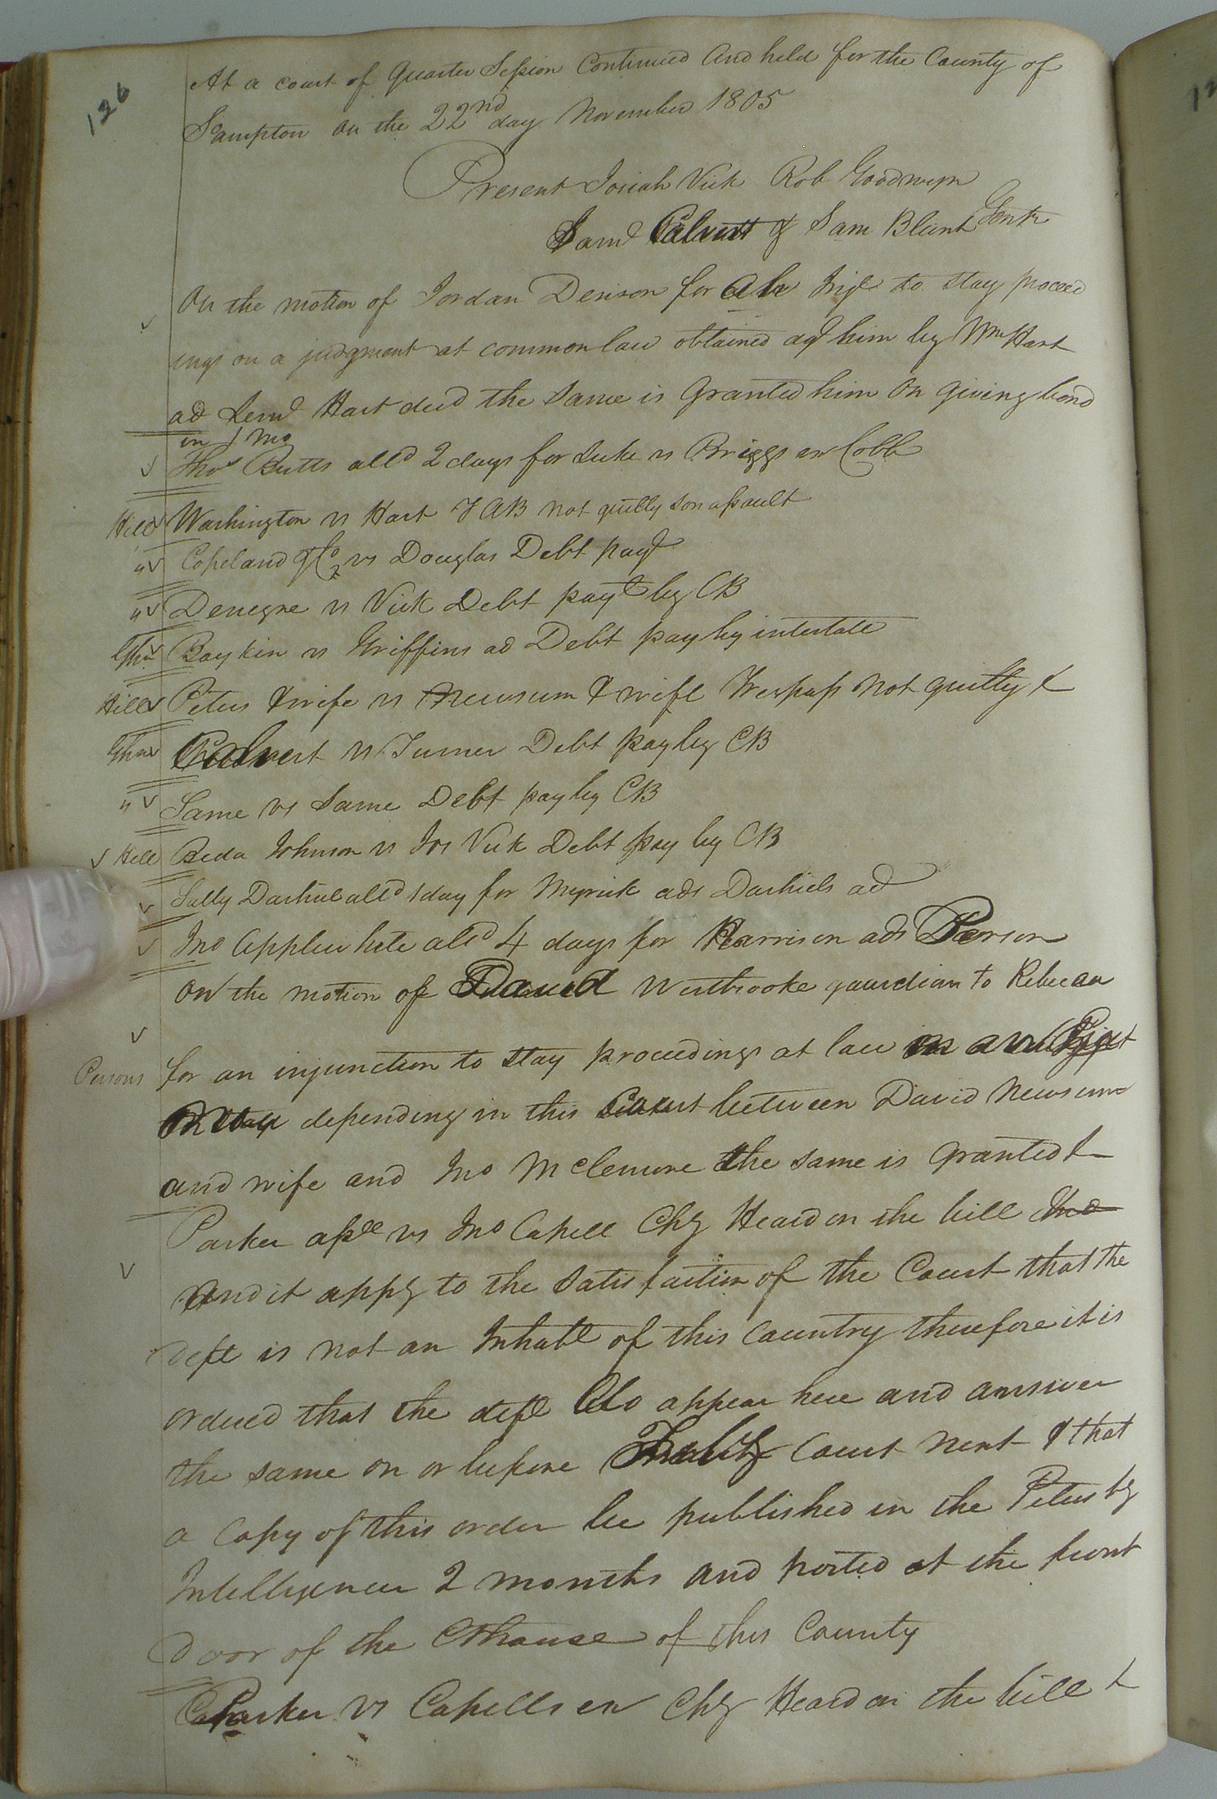 126
At a court of Quarter Session Continued and held for the County of
S'ampton on the 22nd day November 1805
Present Josiah Vick Rob Goodwyn
Saml Calvert & Sam Blunt Gentn
On the motion of Jordan Denson for an Inje to stay proceed
ings on a judgment at common law obtained agt him by Wm Hart
ad Leml Hart decd the same is granted him on giving bond
in 1 Mo
Thos Butts alld 2 days for Luke vs Briggs exr Cobb
Hill Washington vs Hart T AB not guilty son assault
" Copeland & Co vs Douglas Debt payt
" Denegre vs Vick Debt payt by CB
Boykin vs Griffins ad Debt pay by intestate
Hill Peters & wife vs Newsum & wife Trespass not guilty &
Calvert vs Turner Debt pay by CB
" Same vs Same Debt pay by CB
Hill Beda Johnson vs Jos Vick Debt pay by CB
Sally Dashiel alld 1 day for Myrick ads Dashiels ad
Jno Applewhite alld 4 days for Harrison ads Person
On the motion of David Westbrooke guardian to Rebecca
Persons for an injunction to stay proceedings at law in an Eject
depending in this Court between David Newsum
and wife and Jno McLemore the same is granted &
Parker asse vs Jno Capell Chy Heard on the bill the
And it appg to the satisfaction of the Court that the
deft is not an Inhabt of this Country therefore it is
ordered that the deft do appear here and answer
the same on or before Feby Court next & that
a Copy of this order be published in the Petersbg
Intelligencer 2 months and posted at the front
door of the Cthouse of this County
Parker vs Capells exr Chy Heard on the bill &